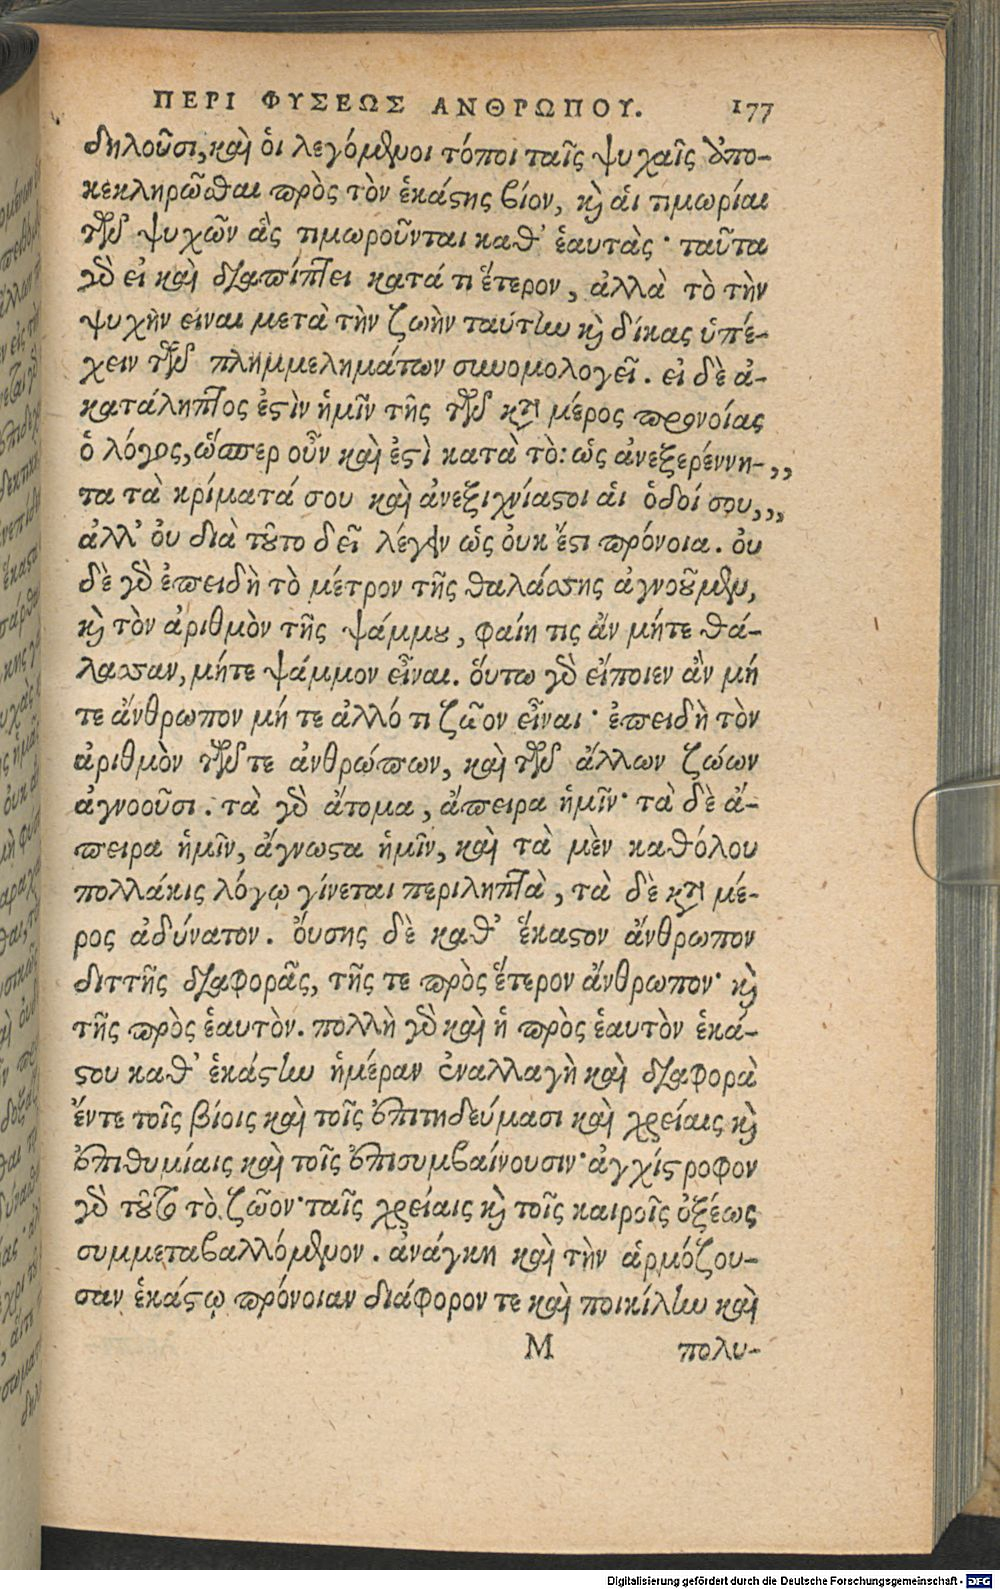 ΠΕΡΙ ΦΥΣΕΩΣ ΑΝΘΡΩΠΟΥ. 177
δηλοῦσι, καὶ ὁι λεγόμενοι τόποι ταῖς ψυχαῖς ἀπο-
κεκληρῶσθαι πρὸς τὸν ἑκάστης βίον, καὶ ἁι τιμωρίαι
τῶν ψυχῶν ἃς τιμωροῦνται καθ' ἑαυτὰς· ταῦτα
γὰρ εἰ καὶ διαπίπτει κατά τι ἕτερον, ἀλλὰ τὸ τὴν
ψυχὴν εἶναι μετὰ τὴν ζωὴν ταύτην καὶ δίκας ὑπέ-
χειν τῶν πλημμελημάτων συνομολογεῖ. εἰ δὲ ἀ-
κατάληπτος ἐστὶν ἡμῖν τῆς τῶν κατὰ μέρος προνοίας
ὁ λόγος, ὥσπερ οὖν καὶ ἐστὶ κατὰ τὸ: ὡς ἀνεξερέυνη- ,,
τα τὰ κρίματά σου καὶ ἀνεξιχνίαστοι ἁι ὁδοί σου, ,,
ἀλλ' ὀυ διὰ τοῦτο δεῖ λέγειν ὡς ὀυκ ἔστι πρόνοια. ὀυ
δὲ γὰρ ἐπειδὴ τὸ μέτρον τῆς θαλάσσης ἀγνοοῦμεν,
καὶ τὸν ἀριθμὸν τῆς ψάμμου, φαίη τις ἄν μήτε θά-
λασσαν, μήτε ψάμμον εἶναι. ὅυτω γὰρ εἴποιεν ἂν μή
τε ἄνθρωπον μή τε ἀλλό τι ζῶον εἶναι· ἐπειδὴ τὸν
ἀριθμὸν τῶν τε ἀνθρώπων, καὶ τῶν ἄλλων ζώων
ἀγνοοῦσι. τὰ γὰρ ἄτομα, ἄπειρα ἡμῖν· τὰ δὲ ἄ-
πειρα ἡμῖν, ἄγνωστα ἡμῖν, καὶ τὰ μὲν καθόλου
πολλάκις λόγῳ γίνεται περιληπτὰ, τὰ δὲ κατὰ μέ-
ρος ἀδύνατον. ὄυσης δὲ καθ' ἕκαστον ἄνθρωπον
διττῆς διαφορᾶς, τῆς τε πρὸς ἕτερον ἄνθρωπον· καὶ
τῆς πρὸς ἑαυτὸν. πολλὴ γὰρ καὶ ἡ πρὸς ἑαυτὸν ἑκά-
στου καθ' ἑκάστην ἡμέραν ἐναλλαγὴ καὶ διαφορὰ
ἔντε τοῖς βίοις καὶ τοῖς ἐπιτηδεύμασι καὶ χρείαις καὶ
ἐπιθυμίαις καὶ τοῖς ἐπισυμβαίνουσιν· ἀγχίστροφον
γὰρ τοῦτο τὸ ζῶον· ταῖς χρείαις καὶ τοῖς καιροῖς ὀξέως
συμμεταβαλλόμενον. ἀνάγκη καὶ τὴν ἁρμόζου-
σαν ἑκάστῳ πρόνοιαν διάφορον τε καὶ ποικίλην καὶ
Μ πολυ-
Digitalisierung gefördert durch die Deutsche Forschungsgemeinschaft - DFG